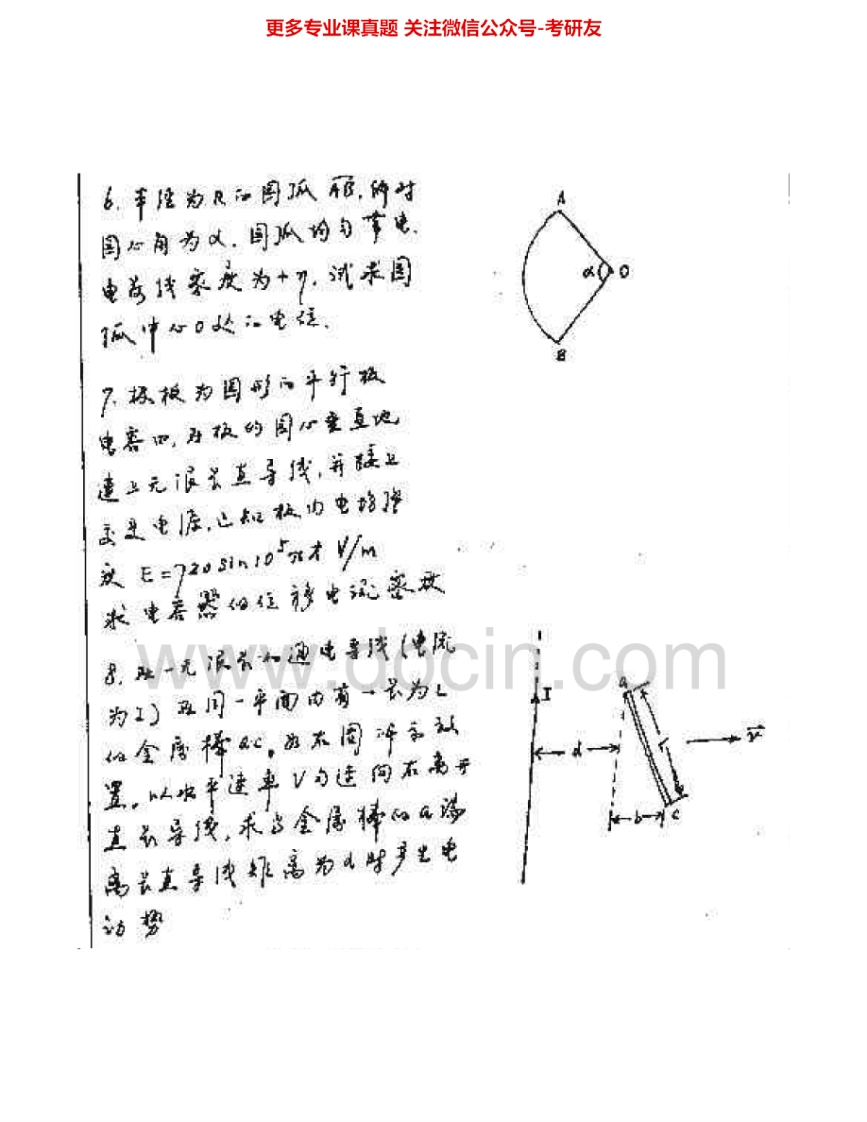 更多专业课真题 关注微信公众号-考研友
6. 半径为R的圆弧AB，所对
圆心角为α，圆弧均匀带电，
电荷线密度为+η，试求圆
弧中心O处的电位．
A
α
O
B
7. 极板为圆形的平行板
电容四，在板的圆心垂直地
连上无限长直导线，并接上
交是电源，已知板内电场强
度 E=720sin10⁵πt V/m
求电容器的位移电流密度
www.docin.com
8. 在一无限长的通电导线（电流
为I）在同一平面内有一长为L
的金属棒ac，如右图所示放
置，以水平速率V匀速向右离开
直长导线，求当金属棒的a端
离长直导线距离为d时产生电
动势
I
a
L
d
v
b
c